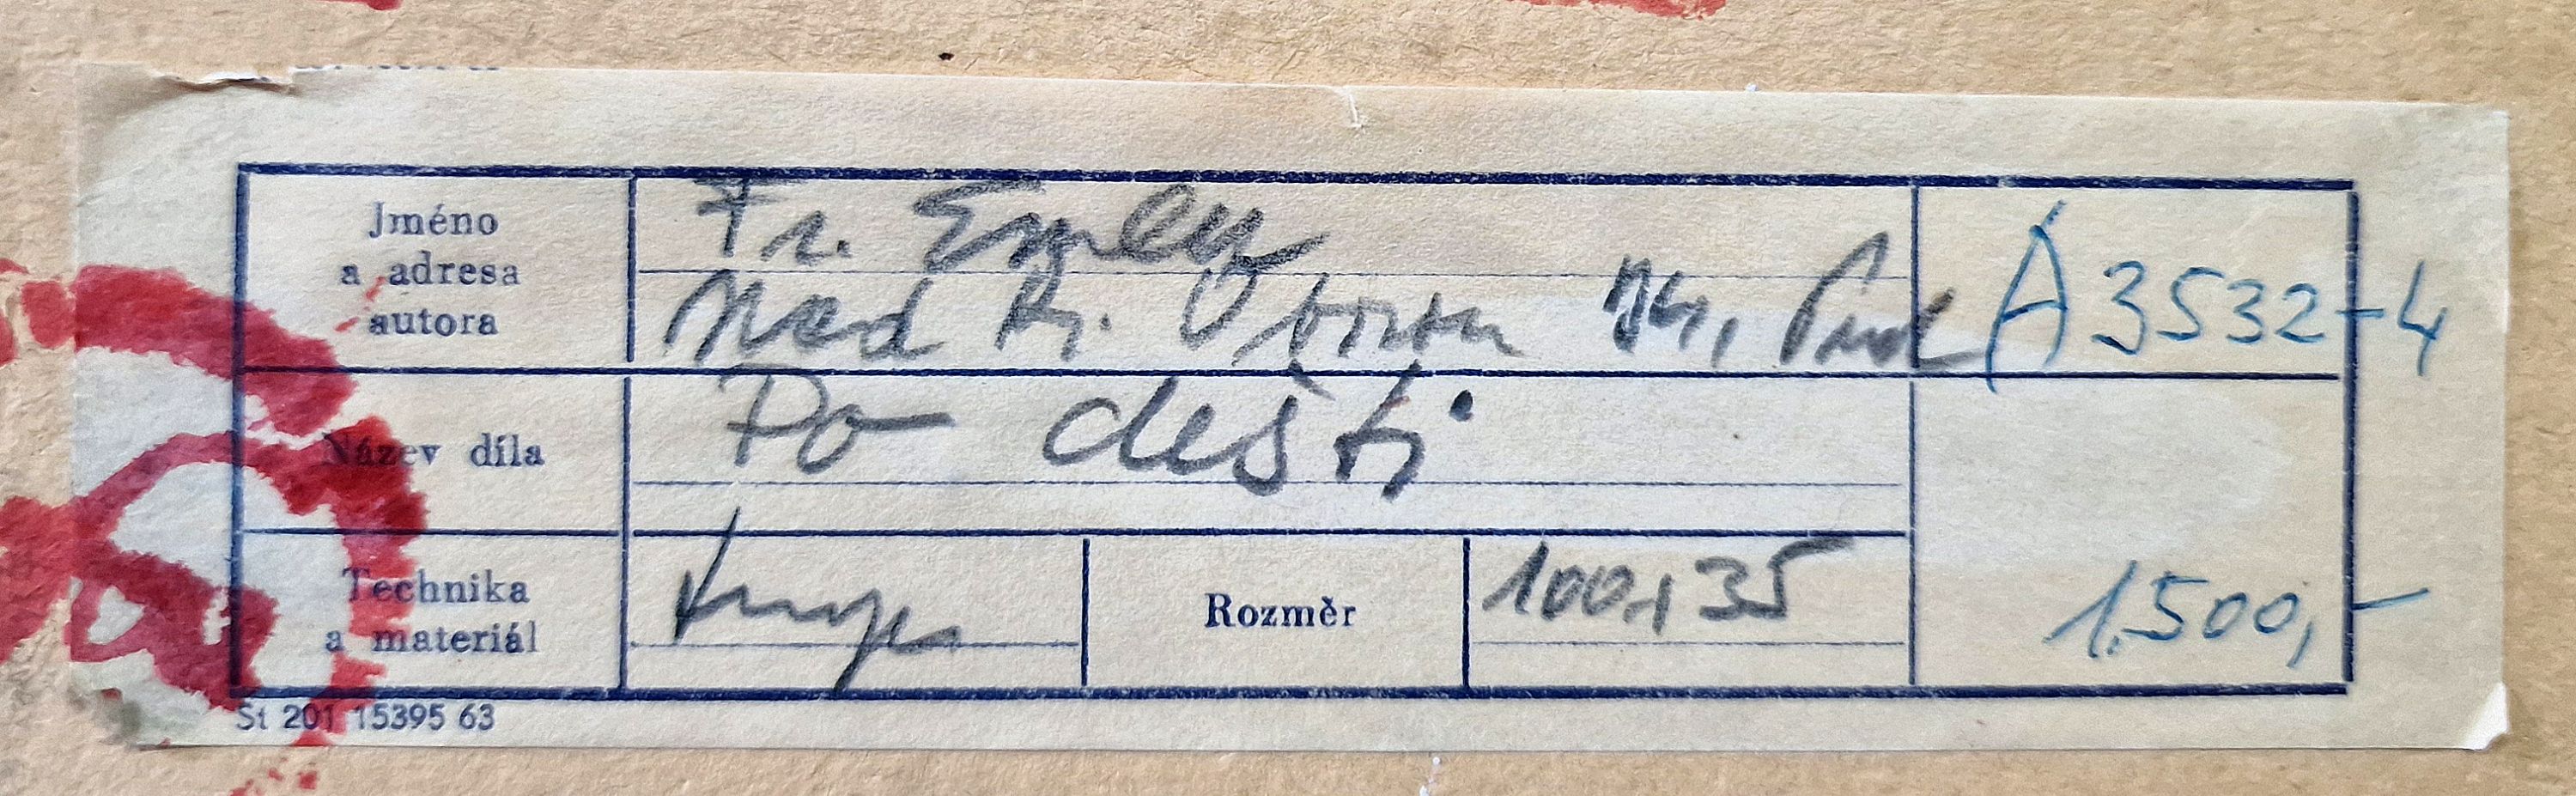 Jméno
a adresa
autora
Fr. Emler
Nad Kr. Oborou
A 3532-4
Název díla
Po dešti
Technika
a materiál
Rozměr
100x35
1.500,-
St 201 15395 63